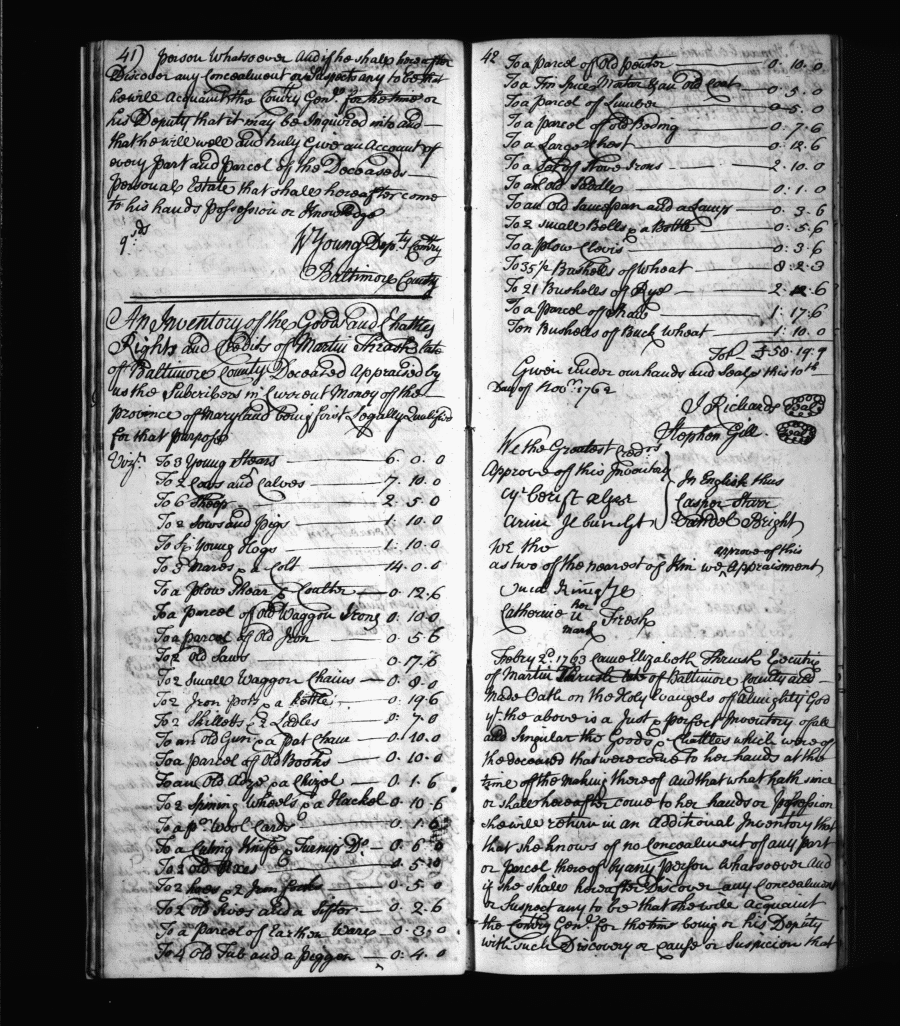 41) person Whatsoever And if he shall hereafter
Discover any Concealment or Suspects any to be that
he will Acquaint the Comry Genl. for the time or
his Deputy that it may be Inquired into and
that he will well and truly Give an Account of
every part and parcel of the Deceaseds
personal Estate that shall hereafter come
to his hands possession or Knowledge
Wm Young Depty Comry
Baltimore County
An Inventory of the Goods and Chattles
Rights and Credits of Martin Thrash late
of Baltimore County Deceased Appraised by
us the Subcribers in Current Money of the
provence of Maryland being first Legally Qualified
for that purpose
Vizt. To 3 Young Stears 6. 0. 0
To 2 Cows and Calves 7. 10. 0
To 6 Sheep 2. 5. 0
To 2 Sows and Pigs 1. 10. 0
To Young Hogs 1. 10. 0
To 3 Mares & a Colt 14. 0. 0
To a plow Shear & Coulter 0. 12. 6
To a Parcel of old Waggon Irons 0. 10. 0
To a parcel of Old Iron 0. 5. 6
To 2 Old Saws 0. 17. 6
To 2 Small Waggon Chains 0. 8. 0
To 2 Iron Pots & a Kettle 0. 19. 6
To 2 Skilletts & 2 Ladles 0. 7. 0
To an old Gun & a Pot Chain 0. 10. 0
To a parcel of Old Books 0. 10. 0
To an Old Adze & a Chizel 0. 1. 6
To 2 Spining Wheels & a Hackel 0. 10. 6
To a pr. Wool Cards 0. 1. 6
To a Cuting Knife & Turnip Do. 0. 6. 0
To 2 old Axes 0. 5. 0
To 2 hoes & 2 Iron forks 0. 5. 0
To 2 old Sives and a Sifter 0. 2. 6
To a Parcel of Earthen Ware 0. 3. 0
To 4 Old Tub and a piggen 0. 4. 0
42 To a parcel of Old Peuter 0. 10. 0
To a Old Coat 0. 5. 0
To a parcel of Lumber 0. 5. 0
To a parcel of old Beding 0. 7. 6
To a Large Chest 0. 12. 6
To a Set of Stove Irons 2. 10. 0
To an old Saddle 0. 1. 0
To an old Saucepan and a Lamp 0. 3. 6
To 2 small Bells & a Bottle 0. 5. 6
To a plow Clevis 0. 3. 6
To 35½ Bushells of Wheat 8. 2. 3
To 21 Bushells of Rye 2. 12. 6
To a parcel of Straw 1. 17. 6
Ten Bushells of Buck Wheat 1. 10. 0
£58. 19. 9
Given under our hands and Seals this 10th
Day of Novr. 1762
J Richards Seal
Stephen Gill. Seal
We the Greatest Credrs.
Approve of this Inventory
In English thus
Casper Starr
Vandel Bright
We the approve of this
as two of the nearest of Kin we Appraisment
Catherine her Fresh
mark
Febry 2d. 1763 Came Elizabeth Thrush Executrix
of Martin Thrush late of Baltimore County and
Made Oath on the Holy Evangels of Almighty God
yt. the above is a Just & perfect Inventory of all
and Singular the Goods & Chattles which were of
the deceased that were come to her hands at the
time of the making thereof And that what hath since
or shall hereafter come to her hands or possession
she will return in an Additional Inventory that
that she knows of no Concealment of any part
or parcel thereof by any person Whatsoever And
if she shall hereafter Discover any Concealment
or Suspect any to be that she will Acquaint
the Comry Genl. for the time being or his Deputy
with such Discovery or cause or Suspicion that